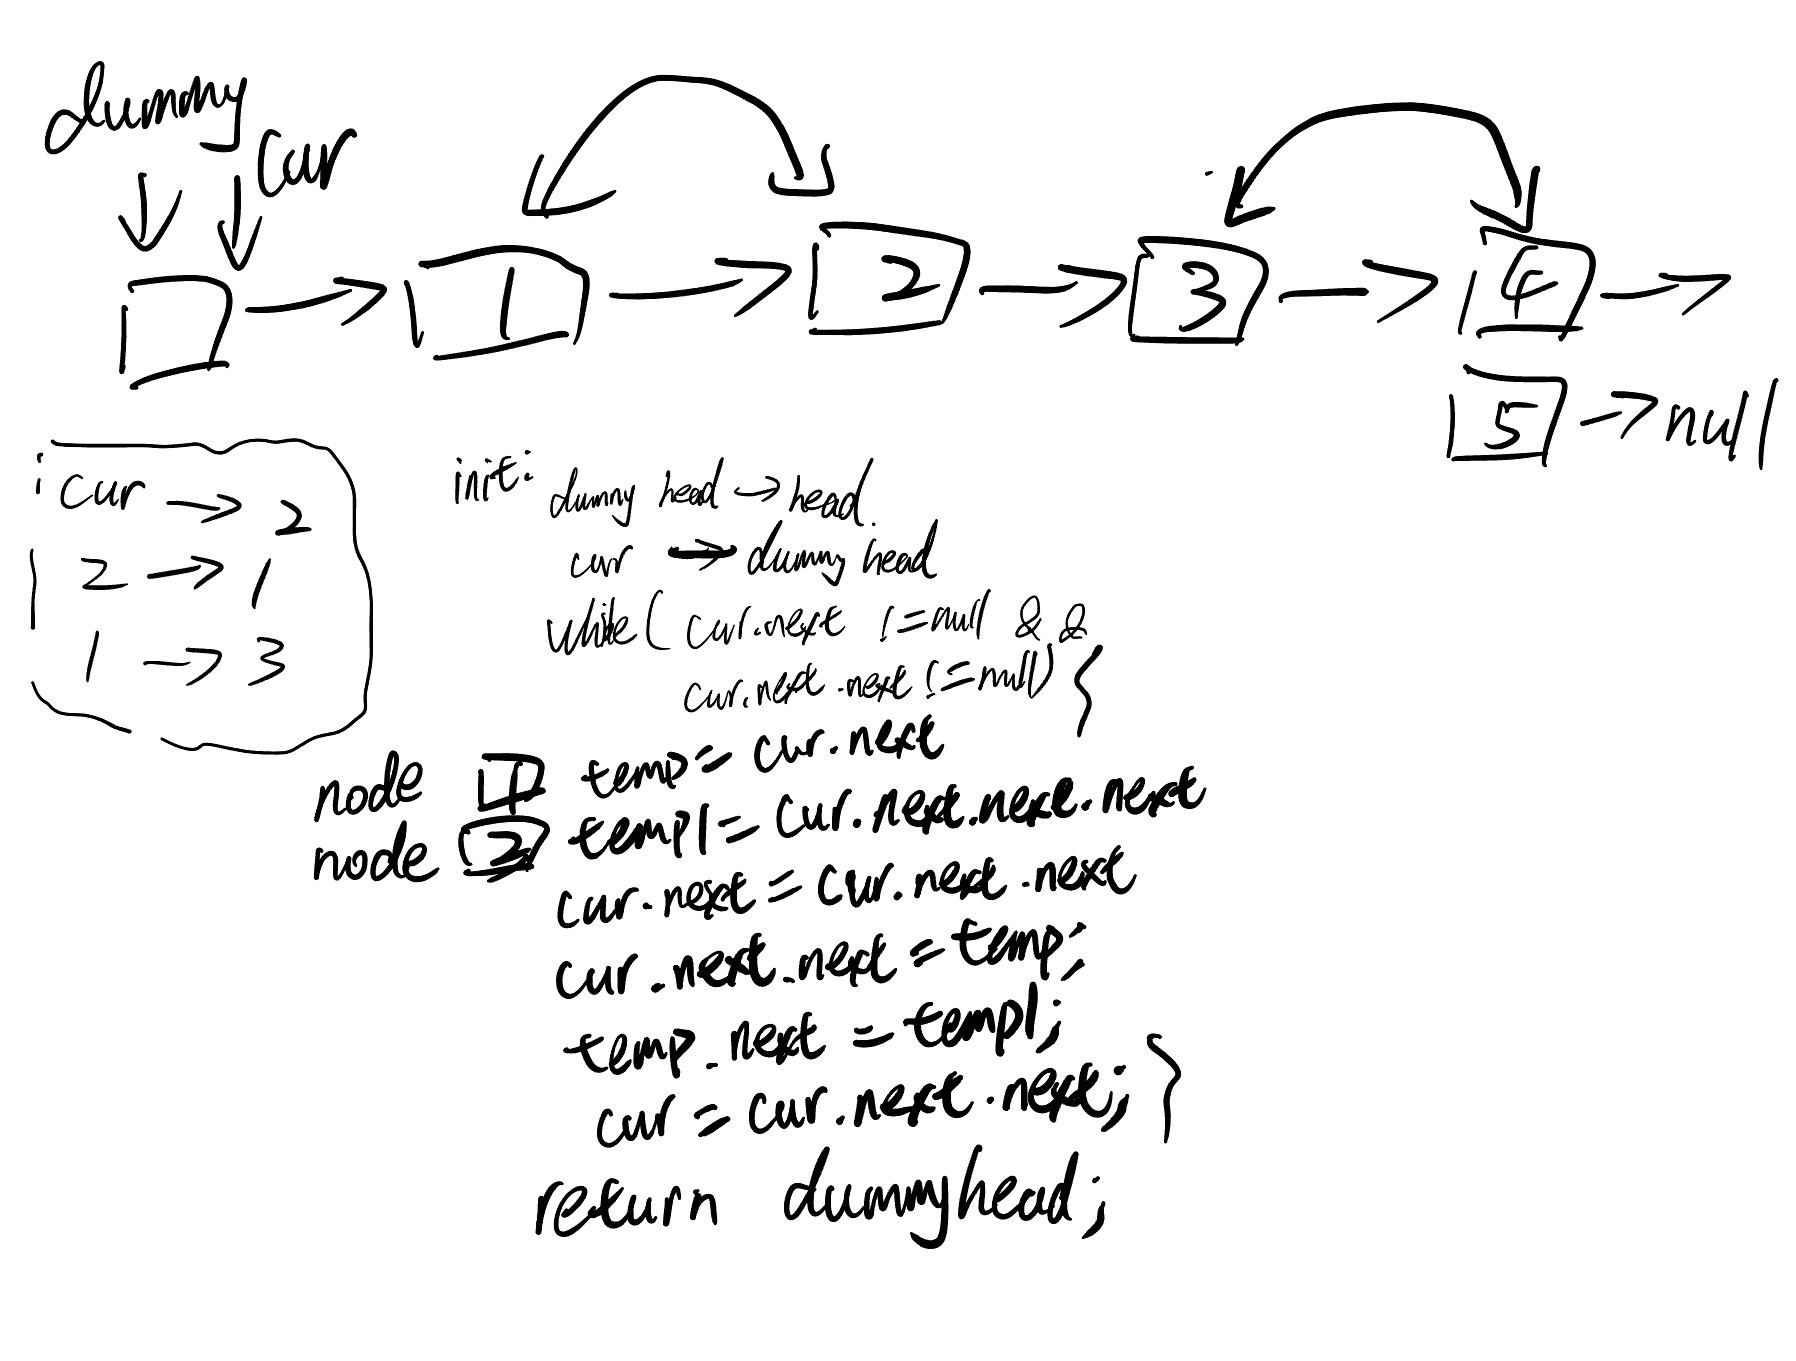 dummy
cur
1 2 3 4
5 → null
cur → 2
2 → 1
1 → 3
init: dummy head → head.
cur → dummy head
while( cur.next !=null &&
cur.next.next !=null) {
node 1 temp = cur.next
node temp1 = cur.next.next.next
cur.next = cur.next.next
cur.next.next = temp;
temp.next = temp1;
cur = cur.next.next; }
return dummyhead;